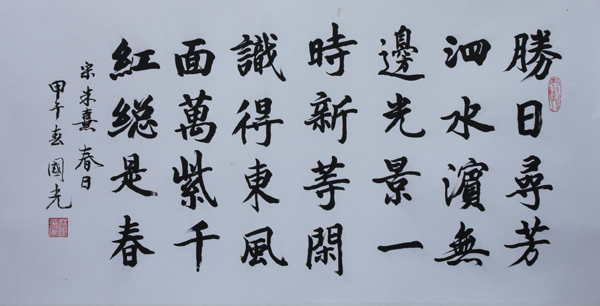 勝日尋芳
泗水濱無
邊光景一
時新等閑
識得東風
面萬紫千
紅總是春
宋朱熹 春日
甲午春國光